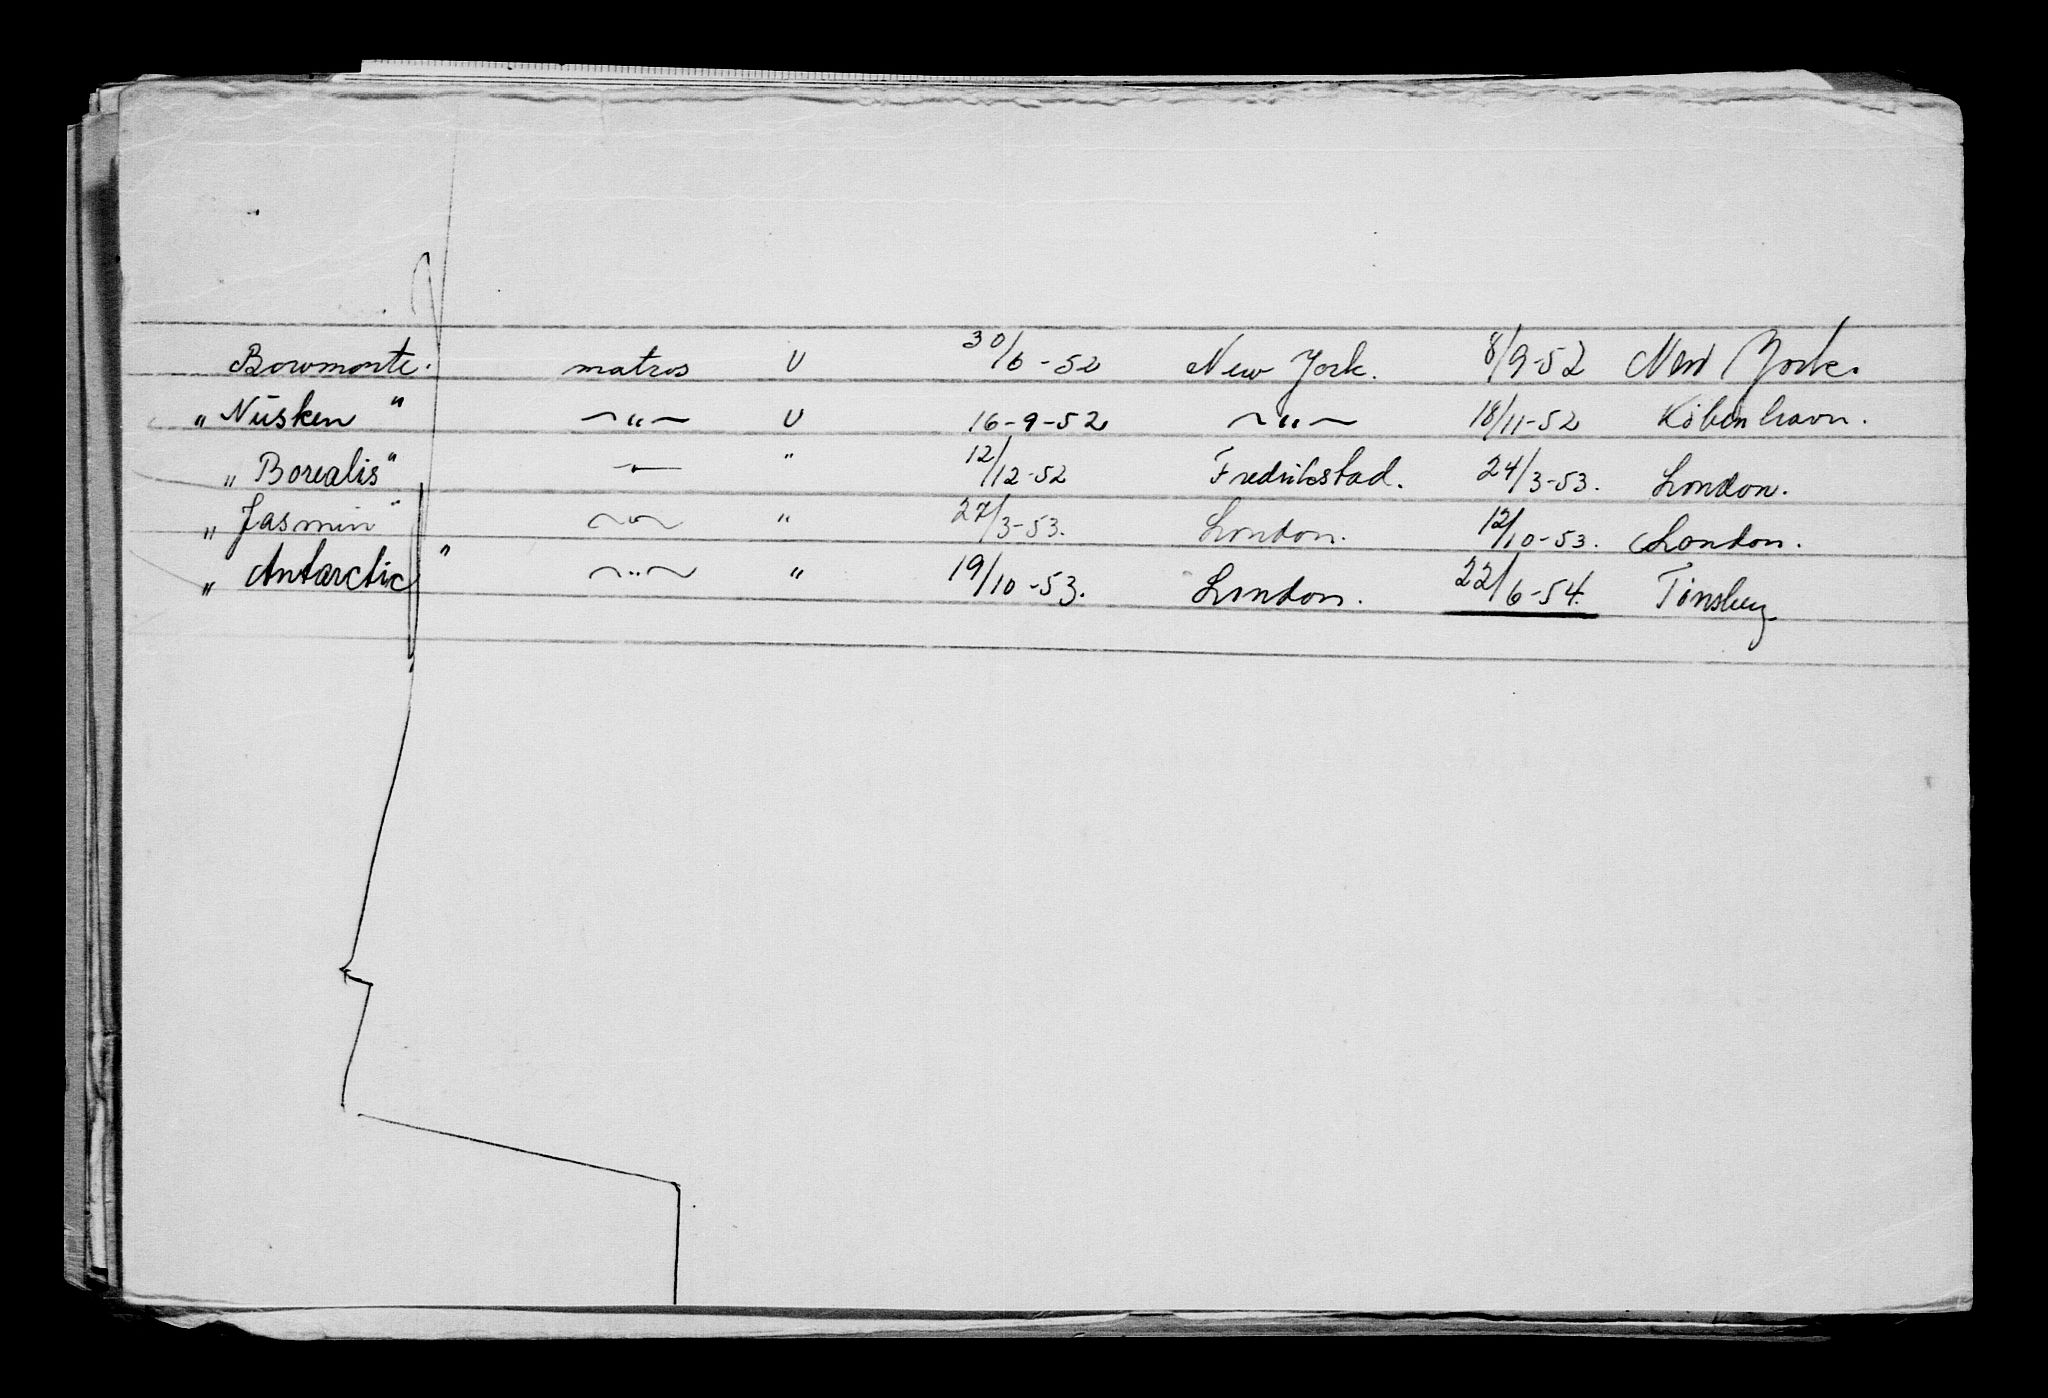 Bowmonte. matros U 30/6-52 New York. 8/9-52 New York.
„Nüsken" —"— U 16-9-52 —"— 18/11-52 København.
„Borealis" —"— " 12/12-52 Fredrikstad. 24/3-53. London.
„Jasmin" —"— " 27/3-53. London. 12/10-53. London.
„Antarctic" —"— " 19/10-53. London. 22/6-54. Tönsberg